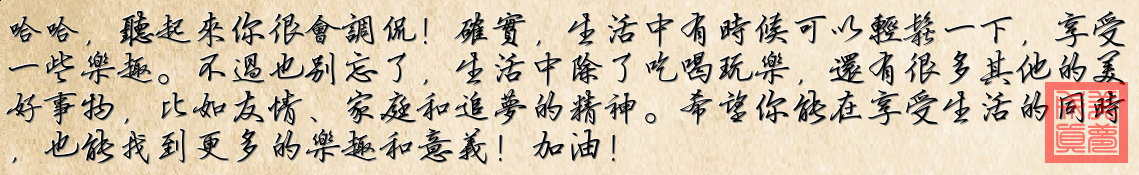 哈哈，聽起來你很會調侃！確實，生活中有時候可以輕鬆一下，享受
一些樂趣。不過也別忘了，生活中除了吃喝玩樂，還有很多其他的美
好事物，比如友情、家庭和追夢的精神。希望你能在享受生活的同時
，也能找到更多的樂趣和意義！加油！